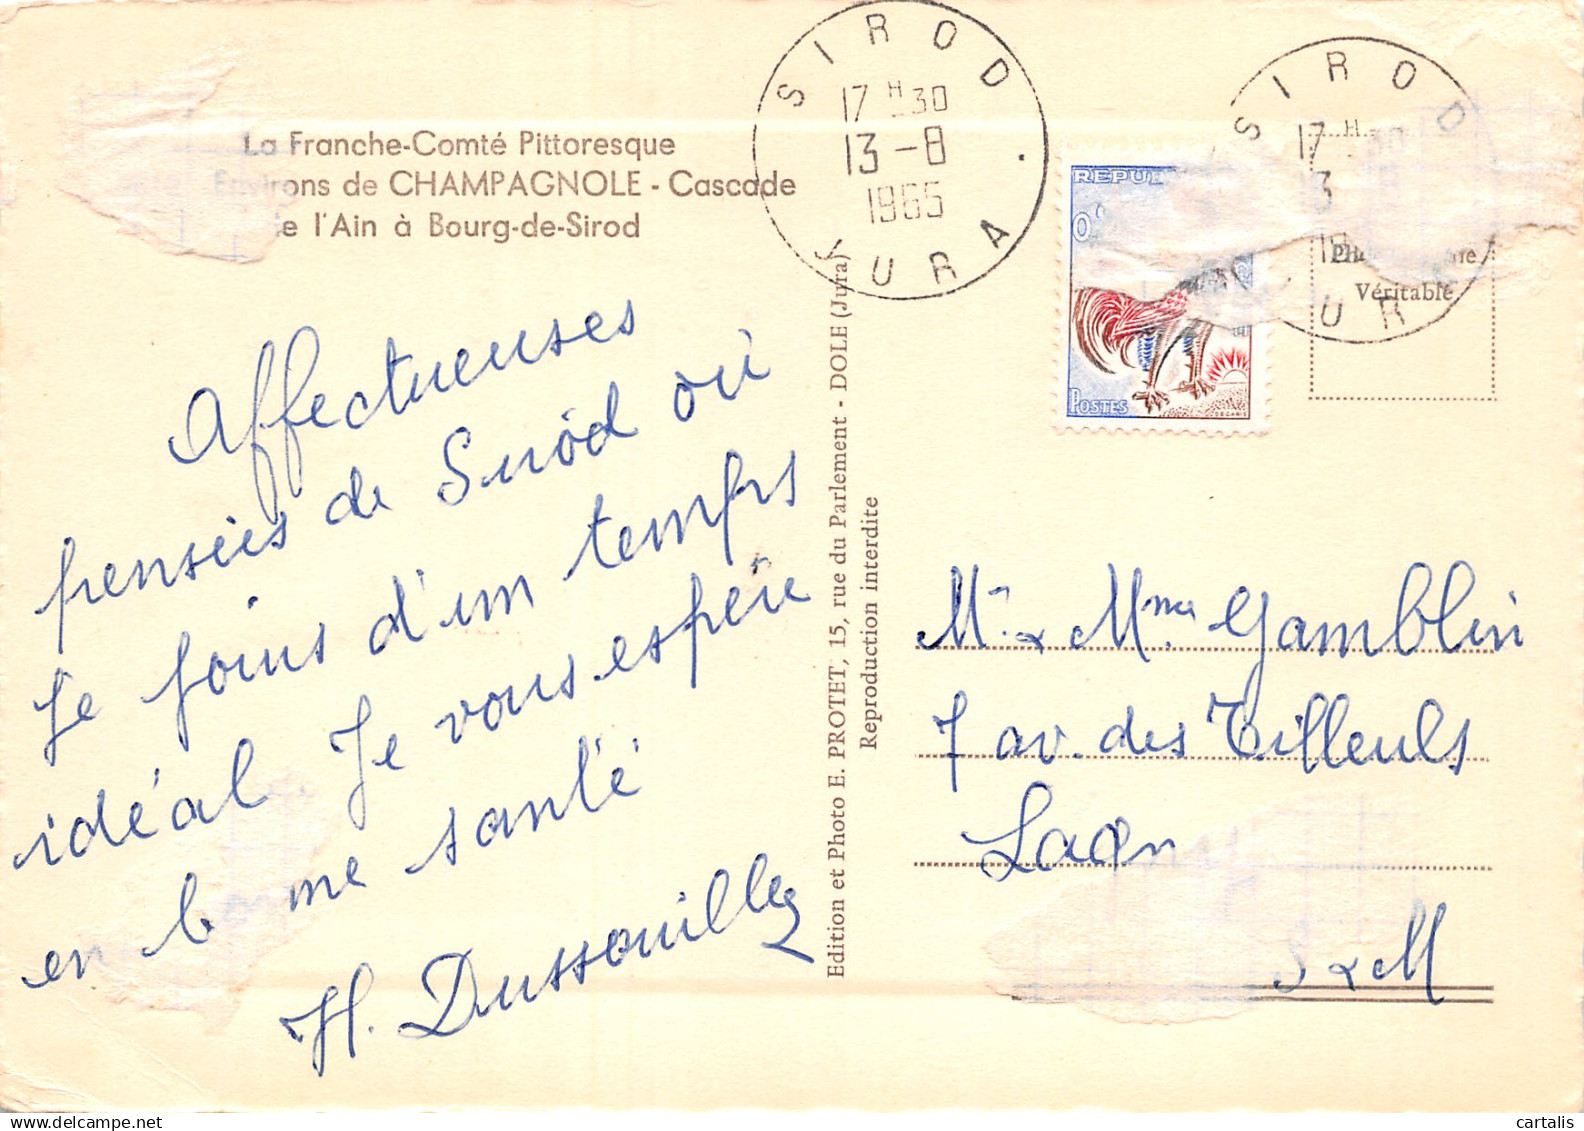 La Franche-Comté Pittoresque
Environs de CHAMPAGNOLE - Cascade
de l'Ain à Bourg-de-Sirod
SIROD
17 H 30
13-8
1965
JURA
SIROD
17 H 30
13
JURA
REPU
0
POSTES
DECARIS
Véritable
Affectueuses
pensées de Sirod où
je jouis d'un temps
idéal Je vous espère
en bonne santé
H. Dussouillez
Edition et Photo E. PROTET, 15, rue du Parlement - DOLE (Jura)
Reproduction interdite
Mr & Mme Gamblin
7 av. des Tilleuls
Laon
S & M
cartalis